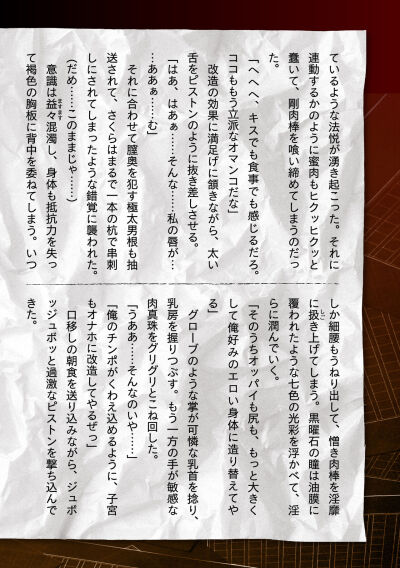 ているような法悦が湧き起こった。それに
連動するかのように蜜肉もヒクッヒクッと
蠢いて、剛肉棒を喰い締めてしまうのだっ
た。
「へへへ、キスでも食事でも感じるだろ。
ココももう立派なオマンコだな」
　改造の効果に満足げに頷きながら、太い
舌をピストンのように抜き差しさせる。
「はあ、はあぁ……そんな……私の唇が…
…ああぁ……む」
　それに合わせて膣奥を犯す極太男根も抽
送されて、さくらはまるで一本の杭で串刺
しにされてしまったような錯覚に襲われた。
（だめ……このままじゃ……）
　意識は益々混濁し、身体も抵抗力を失っ
て褐色の胸板に背中を委ねてしまう。いつ
しか細腰もうねり出して、憎き肉棒を淫靡
に扱き上げてしまう。黒曜石の瞳は油膜に
覆われたような七色の光彩を浮かべて、淫
らに潤んでいく。
「そのうちオッパイも尻も、もっと大きく
して俺好みのエロい身体に造り替えてや
る」
　グローブのような掌が可憐な乳首を捻り、
乳房を握りつぶす。もう一方の手が敏感な
肉真珠をグリグリとこね回した。
「うああ……そんなのいや……」
「俺のチンポがくわえ込めるように、子宮
もオナホに改造してやるぜっ」
　口移しの朝食を送り込みながら、ジュポ
ッジュボッと過激なピストンを撃ち込んで
きた。